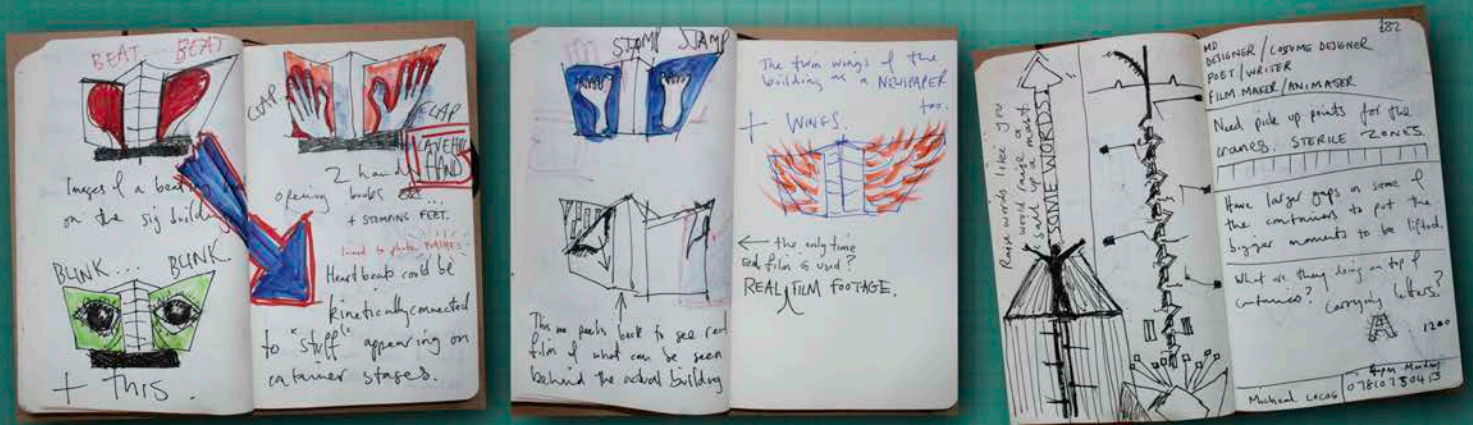 BEAT... BEAT
Images of a beating
on the sig building
BLINK... BLINK.
+ THIS.
CLAP
CLAP
HAND
2 hand
opening books
+ STOMPING FEET.
Heartbeats could be
kinetically connected
to "stuff" appearing on
container stages.
STAMP STAMP
This one peels back to see real
film of what can be seen
behind the actual building
The twin wings of the
building as a NEWSPAPER
too.
+ WINGS.
← the only time
real film is used?
REAL FILM FOOTAGE.
Raise words like you
would raise a
sail up a mast.
SOME WORDS.
£82
MD
DESIGNER / COSTUME DESIGNER
POET / WRITER
FILM MAKER / ANIMATER
Need pick up points for the
cranes. STERILE ZONES.
Have larger gaps in some of
the containers to put the
bigger moments to be lifted.
What are they doing on top of
containers?
Carrying letters?
1200
Micheal Lucas